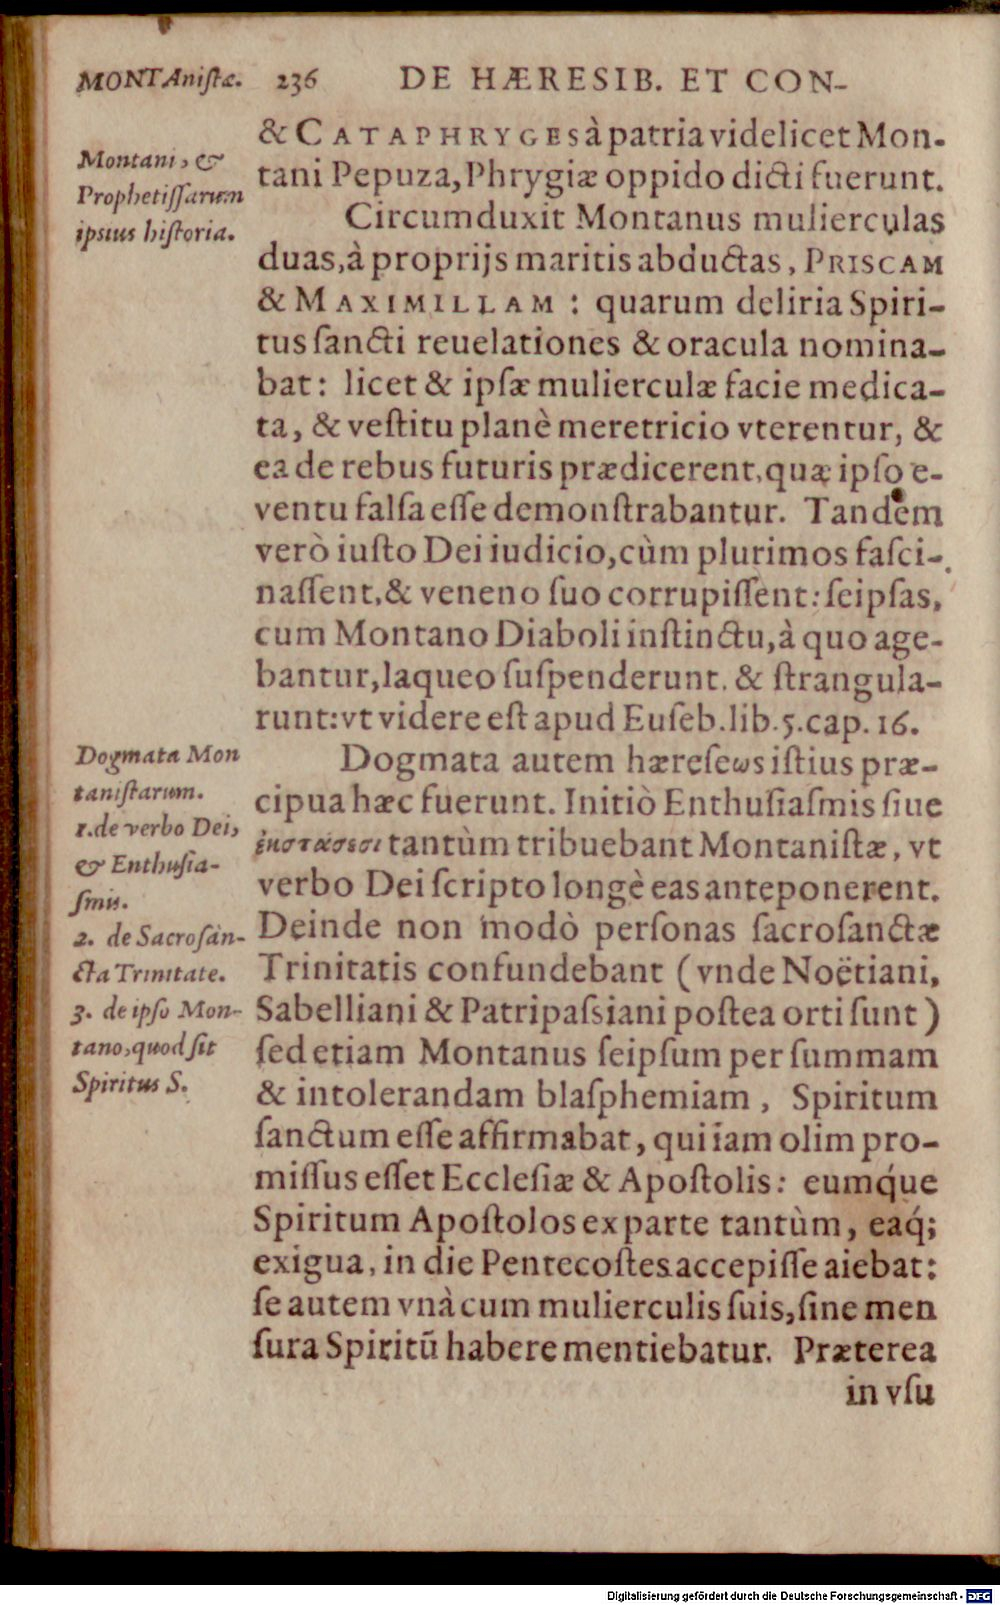 MONTAnistæ. 236 DE HÆRESIB. ET CON-
& CATAPHRYGES à patria videlicet Mon-
tani Pepuza, Phrygiæ oppido dicti fuerunt.
Montani, &
Prophetissarum
ipsius historia.
Circumduxit Montanus mulierculas
duas, à proprijs maritis abductas, PRISCAM
& MAXIMILLAM : quarum deliria Spiri-
tus sancti reuelationes & oracula nomina-
bat: licet & ipsæ mulierculæ facie medica-
ta, & vestitu planè meretricio vterentur, &
ea de rebus futuris prædicerent, quæ ipso e-
ventu falsa esse demonstrabantur. Tandem
verò iusto Dei iudicio, cùm plurimos fasci-
nassent, & veneno suo corrupissent: seipsas,
cum Montano Diaboli instinctu, à quo age-
bantur, laqueo suspenderunt. & strangula-
runt: vt videre est apud Euseb. lib. 5. cap. 16.
Dogmata Mon
tanistarum.
1. de verbo Dei,
& Enthusia-
smis.
2. de Sacrosan-
cta Trinitate.
3. de ipso Mon-
tano, quod sit
Spiritus S.
Dogmata autem hæreseωs istius præ-
cipua hæc fuerunt. Initiò Enthusiasmis siue
ἐκστάσεσι tantùm tribuebant Montanistæ, vt
verbo Dei scripto longè eas anteponerent.
Deinde non modò personas sacrosanctæ
Trinitatis confundebant (vnde Noëtiani,
Sabelliani & Patripassiani postea orti sunt)
sed etiam Montanus seipsum per summam
& intolerandam blasphemiam, Spiritum
sanctum esse affirmabat, qui iam olim pro-
missus esset Ecclesiæ & Apostolis: eumq́ue
Spiritum Apostolos ex parte tantùm, eaq́;
exigua, in die Pentecostes accepisse aiebat:
se autem vnà cum mulierculis suis, sine men
sura Spiritū habere mentiebatur. Præterea
in vsu
Digitalisierung gefördert durch die Deutsche Forschungsgemeinschaft - DFG